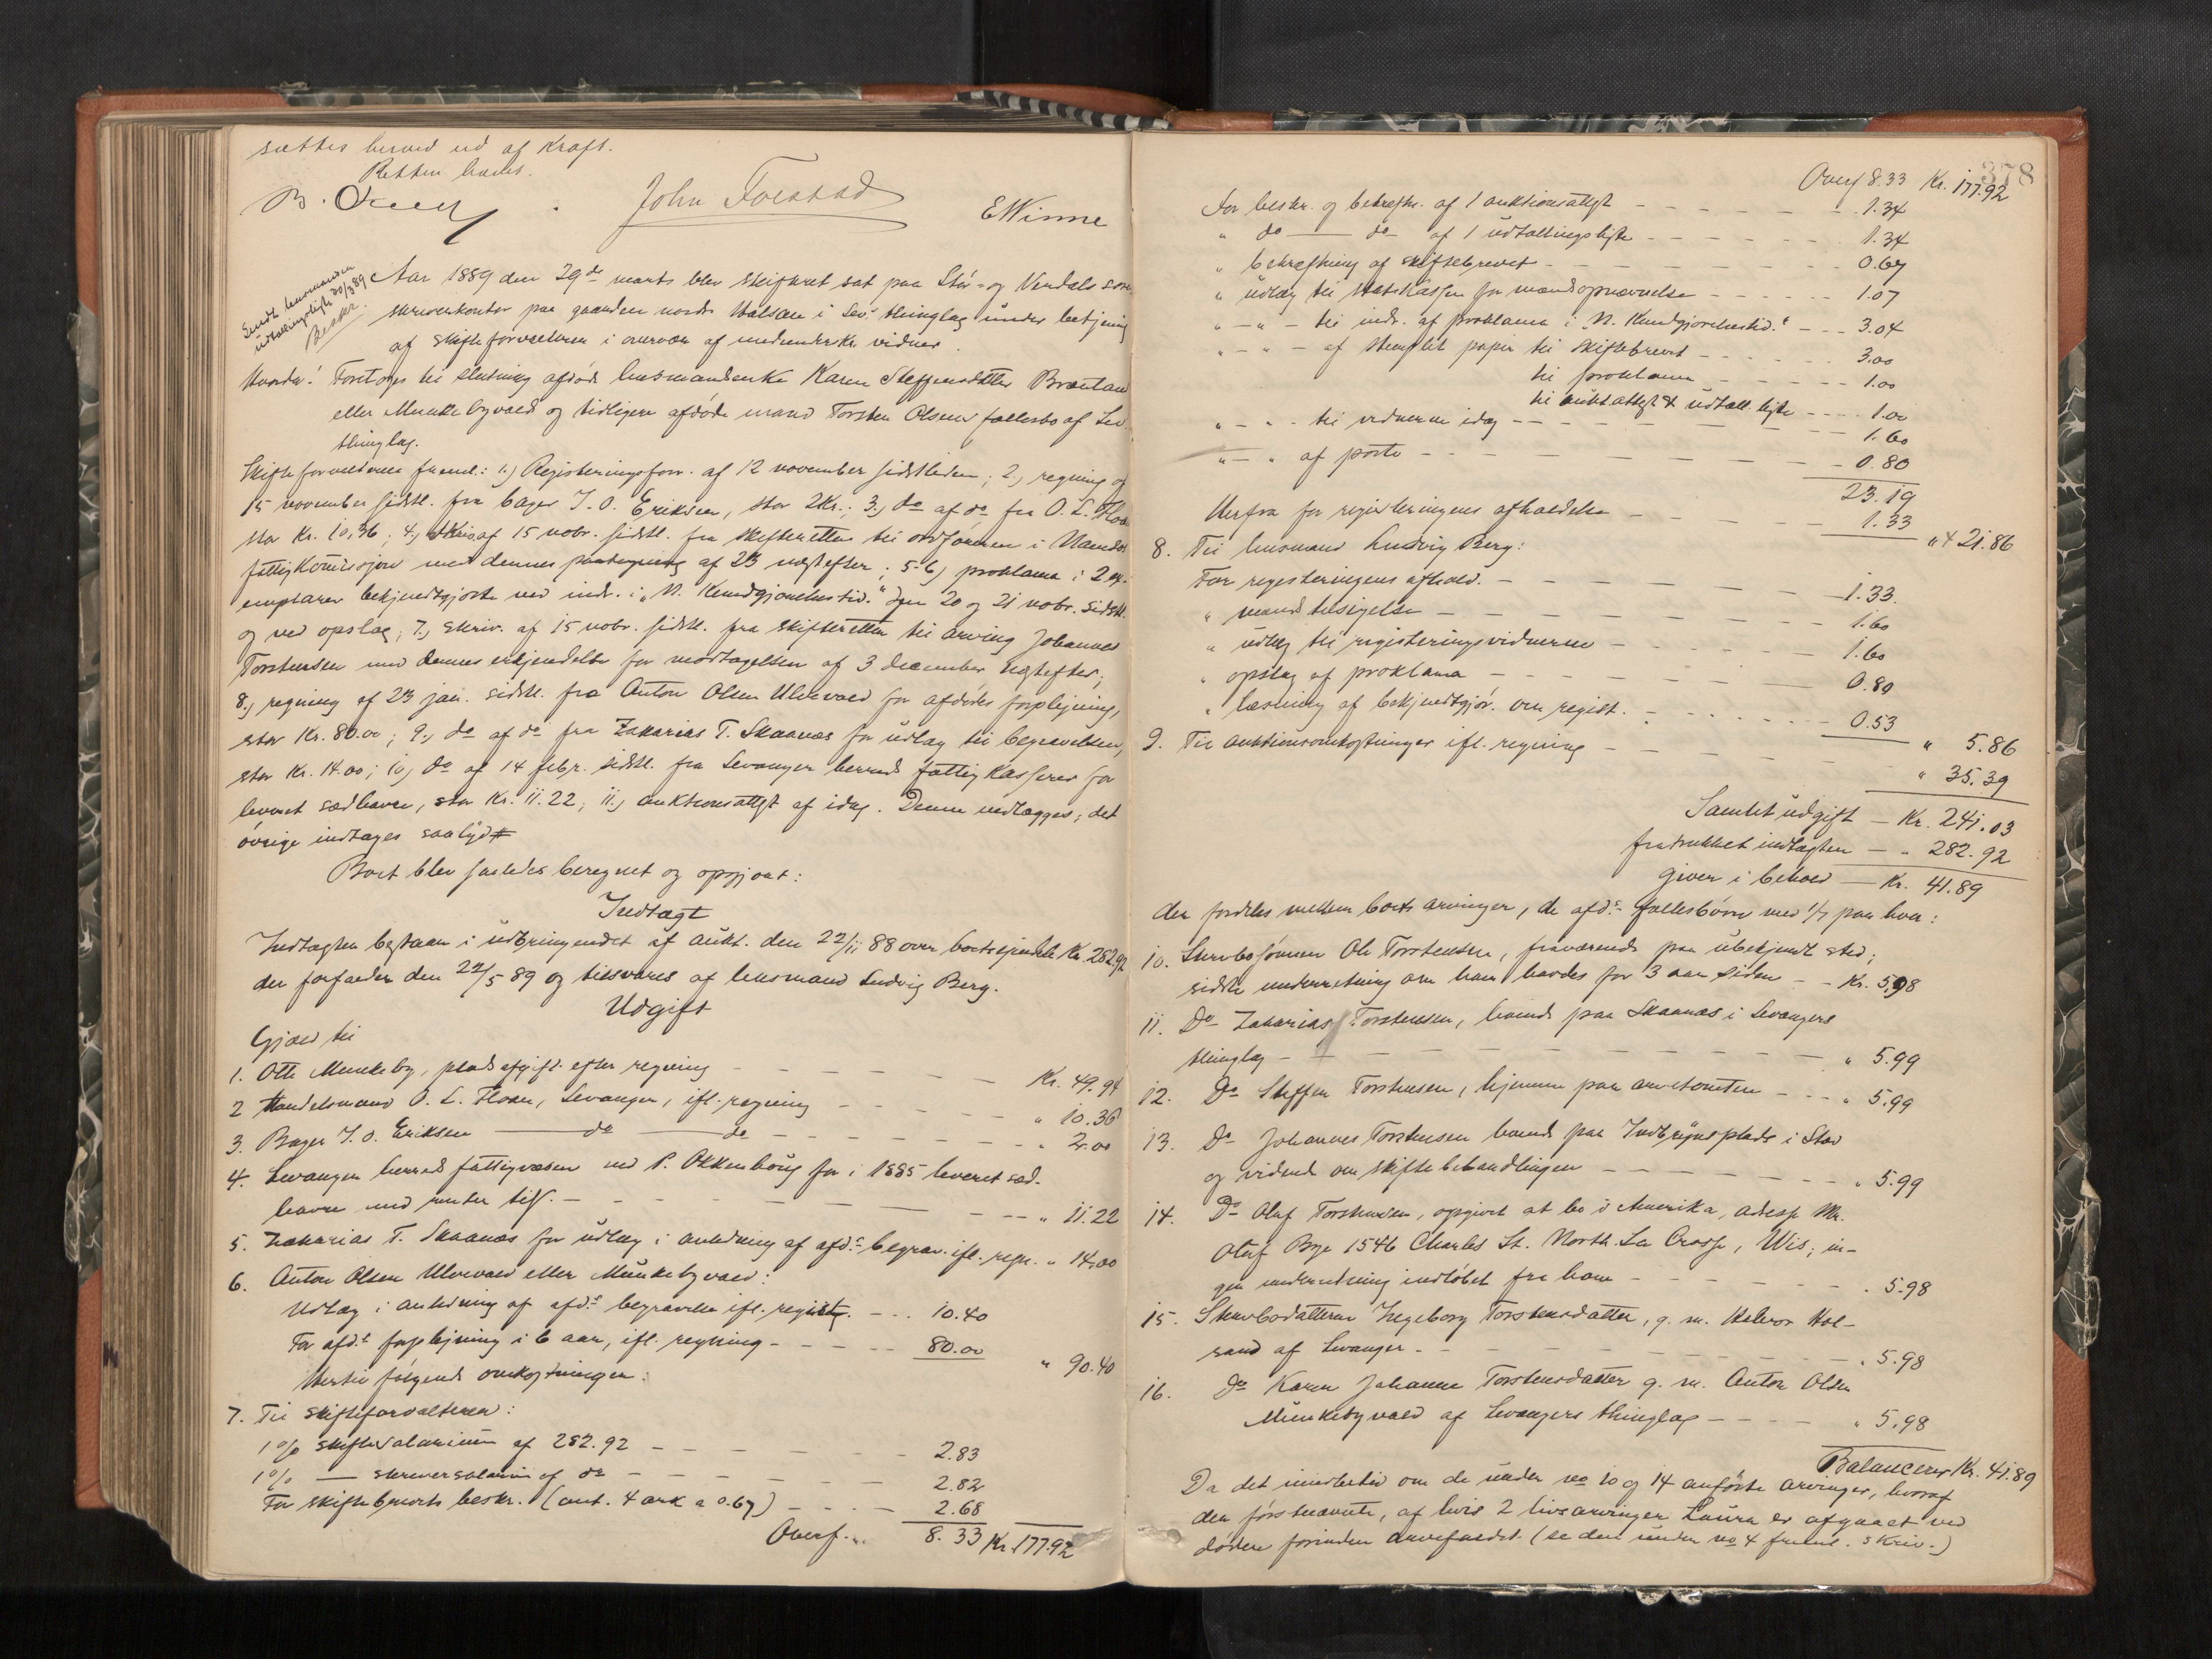 sættes herved ud af Kraft.
Retten hævet.
John Forstad
E Winne
Sendt lensmanden
udtalingsliste 30/3 89
Aar 1889 den 29de marts blev skifteret sat paa Stør- og Verdals soren-
skriverkontor paa gaarden nordr. Halsan i Lev. thinglag under betjening
af skifteforvalteren i overvær af medunderskr. vidner.
Hvorda: Foretoges til slutning afdøde husmandsenke Karen Steffensdatter Brætan
eller Munkebyvald og tidligere afdøde mand Torsten Olsens fællesbo af Lev.
thinglag.
Skifteforvalteren freml: 1, Registeringsforr. af 12 november sidstleden; 2, regning af
15 november sidstl. fra bager J. O. Eriksen, stor 2 Kr.; 3, do af do fra O. L. Floan
stor Kr. 10,36; 4, Skriv. af 15 nobr. sidstl. fra skifteretten til ordføreren i
fattigkommisjon med dennes paategning af 23 næstefter; 5-6, proklama i 2 ex-
emplarer bekjendtgjorte ved indr. i "N. Kundgjørelsestid." den 20 og 21 nobr. sidstl.
og ved opslag; 7, skriv. af 15 nobr. sidstl. fra skifteretten til arving Johannes
Torstensen med dennes erkjendelse for modtagelsen af 3 december næstefter;
8, regning af 23 jan. sidstl. fra Anton Olsen Ulvevald for afdødes forplejning,
stor Kr. 80.00; 9, do af do fra Zakarias T. Skaanæs for udlæg til begravelsen,
stor Kr. 14.00; 10, do af 14 febr. sidstl. fra Levanger herreds fattigkasserer for
leveret sædhavre, stor Kr. 11.22; 11, auktionsattest af idag. Denne vedlægges; det
øvrige indtages saalyd#
Boet blev saaledes beregnet og opgjort:
Indtægt
Indtægten bestaar i udbringendet af aukt. den 22/11 88 over boets ejendele Kr. 282.92
der forfalder den 22/5 89 og tilsvares af lensmand Ludvig Berg.
Udgift
Gjæld til
1. Otte Munkeby, pladsafgift efter regning - - - Kr. 49.94
2 Handelsmand O. L. Floan, Levanger, ifl. regning - - - " 10.36
3. Bager J. O. Eriksen — do — do - - - " 2.00
4. Levanger herreds fattigvæsen ved P. Okkenhoug for i 1885 leveret sæd-
havre med renter tils. - - - " 11.22
5. Zakarias T. Skaanæs for udlæg i anledning af afds. begrav. ifl. regn. " 14.00
6. Anton Olsen Ulvevald eller Munkebyvald:
Udlæg i anledning af afds. begravelse ifl. regning. - - - 10.40
For afds. forplejning i 6 aar, ifl. regning - - - 80.00 " 90.40
Hertil følgende omkostninger:
7. Til skifteforvalteren:
1% skiftesalarium af 282.92 - - - 2.83
1% — skriversalarium af do - - - 2.82
For skiftebrevets beskr. (ant. 4 ark a 0.67) - - - 2.68
Overf. .. 8.33 Kr. 177.92
378
Overf 8.33 Kr. 177.92
For beskr. og bekræftn. af 1 auktionsattest - - - 1.34
" do — do af 1 udtallingsliste - - - 1.34
" bekræftning af skiftebrevet - - - 0.67
" udlæg til statskassen for mandsopnævnelse - - - 1.07
" — " — til indr. af proklama i "N. Kundgjørelsestid." - - - 3.04
" — " — af stemplet papir til skiftebrevet - - - 3.00
til proklama - - - 1.00
til aukt.attest & udtall. liste - - - 1.00
" — " - til vidnerne idag - - - 1.60
" — " af porto - - - 0.80
23.19
Herfra for registeringens afholdelse - - - 1.33 " 21.86
8. Til lensmand Ludvig Berg:
For registeringens afhold. - - - 1.33.
" mands tilsigelse - - - 1.60
" udlæg til registeringsvidnerne - - - 1.60
" opslag af proklama - - - 0.80
" læsning af bekjendtgjør. om regist. - - - 0.53 " 5.86
9. Til auktionsomkostninger ifl. regning - - - " 35.39
Samlet udgift — Kr. 241.03
fratrukket indtægten — " 282.92
giver i behold — Kr. 41.89
der fordeles mellem boets arvinger, de afds. fællesbørn med 1/7 paa hver:
10. Stervbosønnen Ole Torstensen, fraværende paa ubekjendt sted;
sidste underretning om ham havdes for 3 aar siden - - Kr. 5.98
11. Do Zakarias Torstensen, boende paa Skaanæs i Levangers
thinglag - - - " 5.99
12. Do Steffen Torstensen, hjemme paa arvetomten - - - " 5.99
13. Do Johannes Torstensen boende paa Indbrynsplads i Stod
og vidende om skiftebehandlingen - - - " 5.99
14. Do Olaf Torstensen, opgivet at bo i Amerika, adresse Mr.
Olaf Bye 1546 Charles St. North La Crosse, Wis; in-
gen underretning indløbet fra ham - - - " 5.98
15. Stervbodatteren Ingeborg Torstensdatter, g. m. Halvor Hal-
sand af Levanger - - - " 5.98
16. Do Karen Johanne Torstensdatter g. m. Anton Olsen
Munkebyvald af Levangers thinglag - - - " 5.98
Balancerer Kr. 41.89
Da det imidlertid om de under no 10 og 14 anførte arvinger, hvoraf
den førstnævnte, af hvis 2 livsarvinger Laura er afgaaet ved
døden forinden arvefaldet (se den under no 4 freml. skriv.)